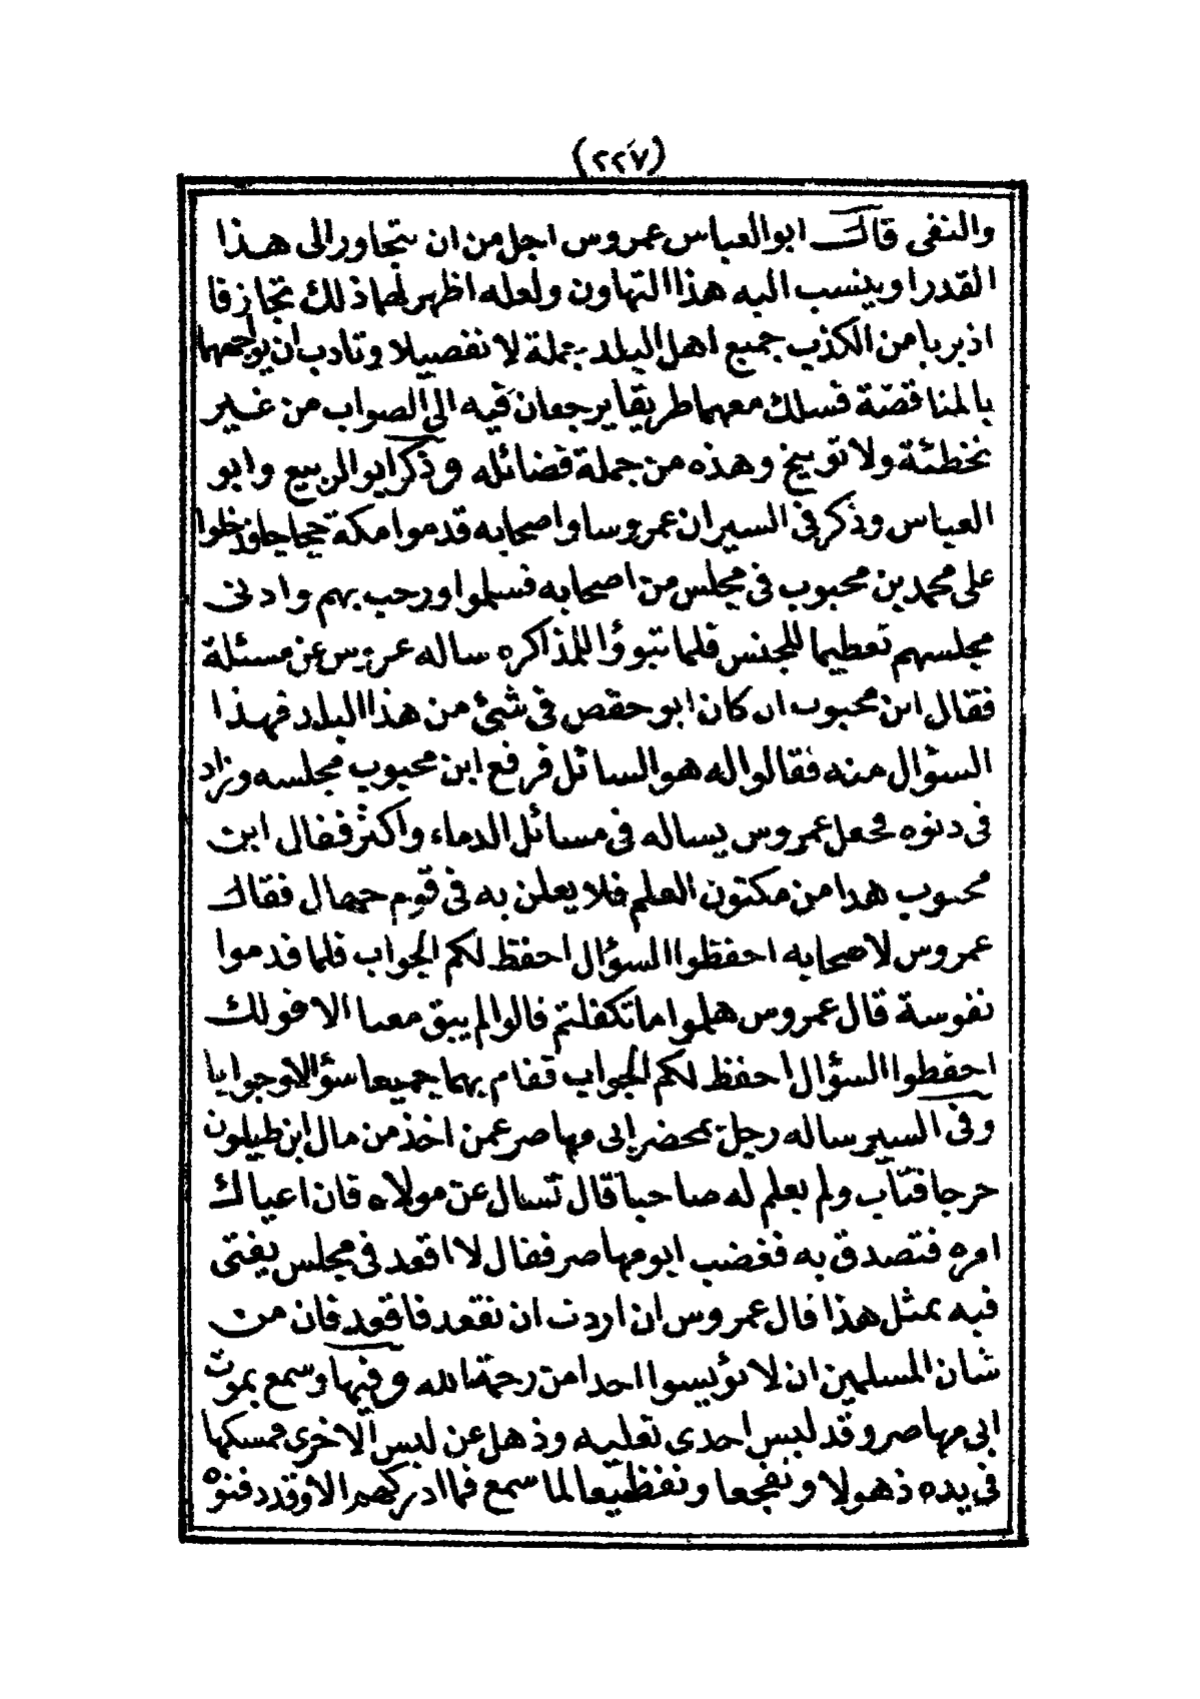 (٢٢٧)
والنفى قال ابوالعباس عمروس اجل من ان يتجاور الى هذا
القدر او ينسب اليه هذا التهاون ولعله اظهر لهما ذلك تجازفا
اذ بريا من الكذب جميع اهل البلد جملة لا تفصيلا وتادب ان يواجههما
بالمناقضة فسلك معهما طريقا يرجعان فيه الى الصواب من غير
تخطئة ولا توبيخ وهذه من جملة فضائله وذكر ابو الربيع وابو
العباس وذكر فى السير ان عمروسا واصحابه قدموا مكة حجاجا فدخلوا
على محمد بن محبوب فى مجلس من اصحابه فسلموا ورحب بهم وادنى
مجلسهم تعظيما للجنس فلما تبوؤا للمذاكره ساله عمروس عن مسئلة
فقال ابن محبوب ان كان ابو حفص فى شئ من هذا البلد فهذا
السؤال منه فقالوا له هو السائل فرفع ابن محبوب مجلسه وزاد
فى دنوه فجعل عمروس يساله فى مسائل الدماء واكثر فقال ابن
محبوب هذا من مكتون العلم فلا يعلن به فى قوم جهال فقال
عمروس لاصحابه احفظوا السؤال احفظ لكم الجواب فلما قدموا
نفوسة قال عمروس هلموا ما تكفلتم قالوا لم يبق معنا الا قولك
احفظوا السؤال احفظ لكم الجواب فقام بهما جميعا سؤالا وجوابا
وفى السير ساله رجل بمحضر ابى مهاصر عمن اخذ من مال ابن طيلون
حرجا فتاب ولم يعلم له صاحبا قال تسال عن مولاه فان اعياك
امره فتصدق به فغضب ابو مهاصر فقال لا اقعد فى مجلس يفتى
فيه بمثل هذا قال عمروس ان اردت ان تقعد فاقعد فان من
شان المسلمين ان لا يؤيسوا احدا من رحمة الله وفيها وسمع بموت
ابى مهاصر وقد لبس احدى نعليه وذهل عن لبس الاخرى فمسكها
فى يده ذهولا وتفجعا وتفظيعا لما سمع فما ادركهم الا وقد دفنوه